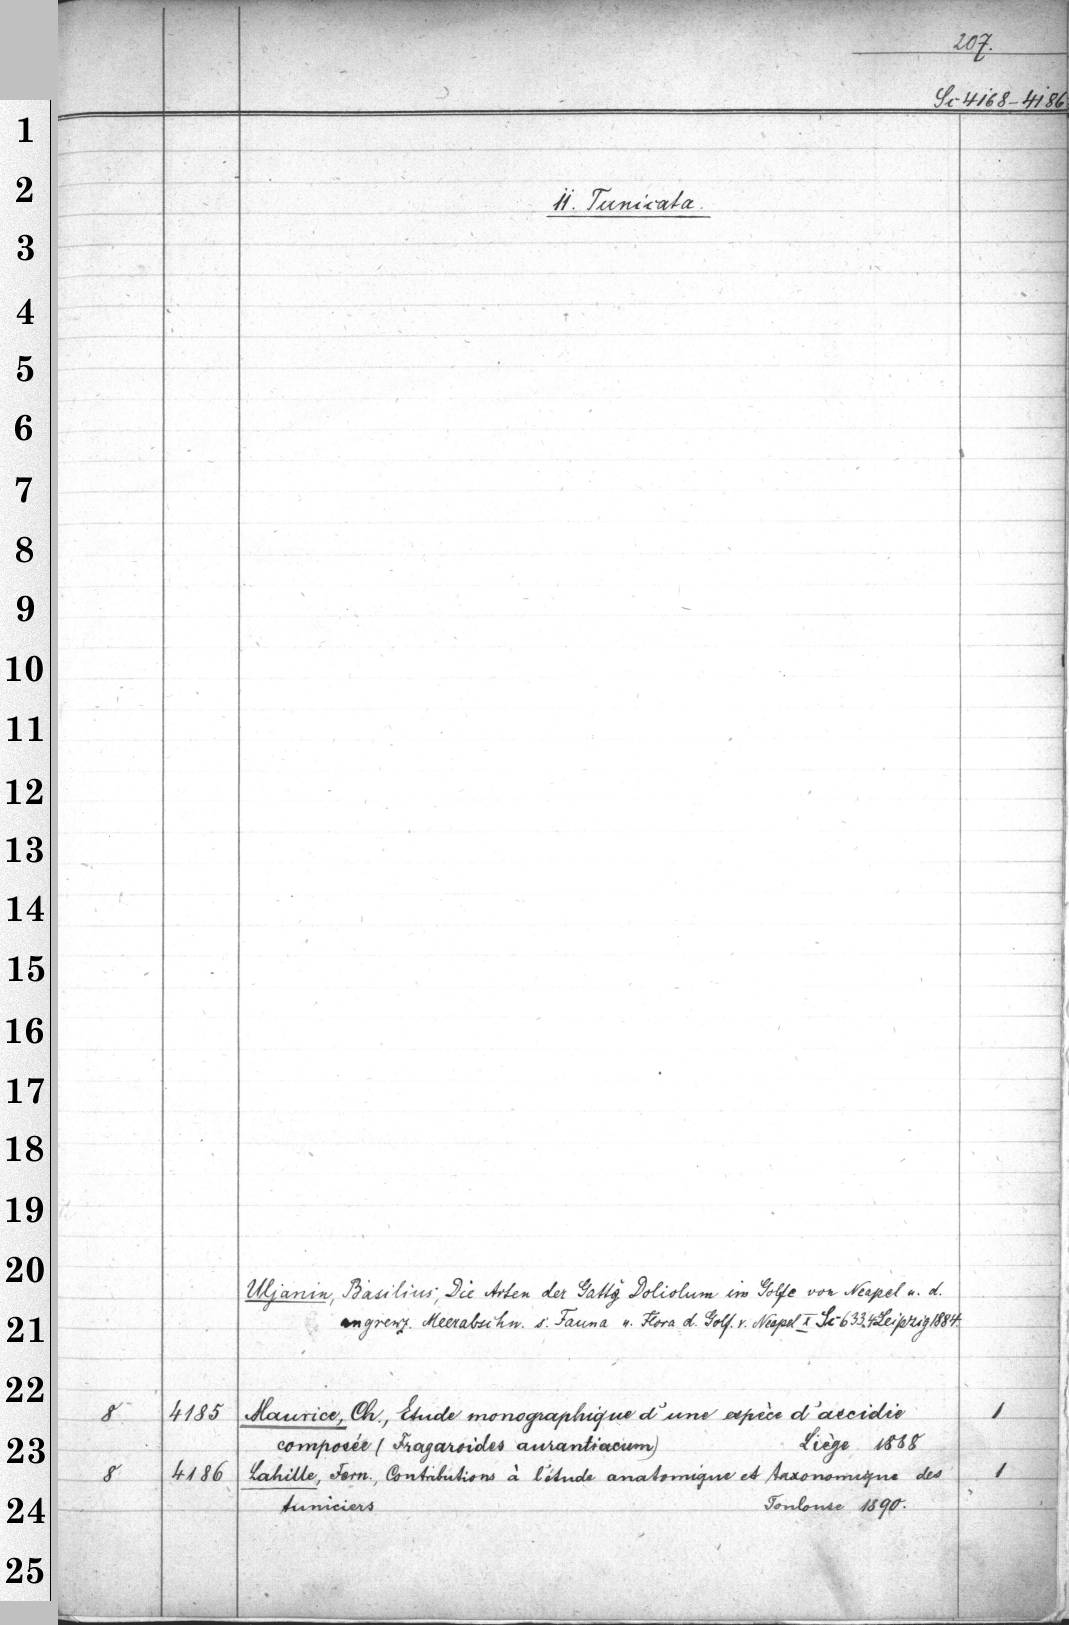 207.
Sc 4168-4186
1
2
ii. Tunicata.
3
4
5
6
7
8
9
10
11
12
13
14
15
16
17
18
19
20
Uljanin, Basilius, Die Arten der Gattg Doliolum im Golfe von Neapel u. d.
21
angrenz. Meerabschn. s. Fauna u. Flora d. Golf. v. Neapel X Sc 6334 Leipzig 1884.
22
8 4185 Maurice, Ch., Etude monographique d'une espèce d'ascidie 1
23
composée (Fragaroides aurantiacum) Liège 1888
8 4186 Lahille, Fern., Contributions à l'étude anatomique et taxonomique des 1
24
tuniciers Toulouse 1890.
25